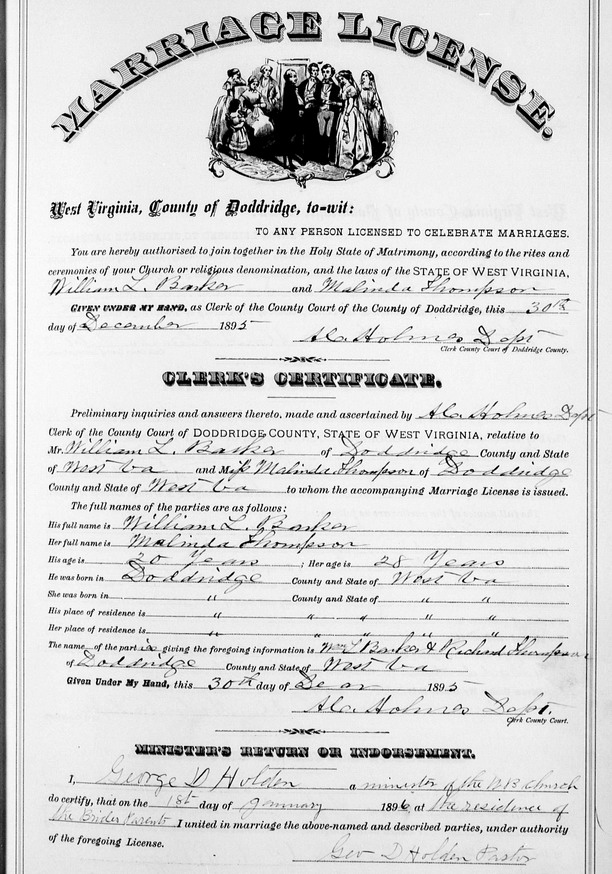 MARRIAGE LICENSE.
West Virginia, County of Doddridge, to-wit:
TO ANY PERSON LICENSED TO CELEBRATE MARRIAGES.
You are hereby authorised to join together in the Holy State of Matrimony, according to the rites and
ceremonies of your Church or religious denomination, and the laws of the STATE OF WEST VIRGINIA,
William L. Barker and Malinda Thompson
GIVEN UNDER MY HAND, as Clerk of the County Court of the County of Doddridge, this 30th
day of December 1895
Holmes Dept
Clerk County Court of Doddridge County.
CLERK'S CERTIFICATE.
Preliminary inquiries and answers thereto, made and ascertained by Holmes Dept
Clerk of the County Court of DODDRIDGE COUNTY, STATE OF WEST VIRGINIA, relative to
Mr. William L. Barker of Doddridge County and State
of West Va and Miss Malinda Thompson of Doddridge
County and State of West Va to whom the accompanying Marriage License is issued.
The full names of the parties are as follows:
His full name is William L. Barker
Her full name is Malinda Thompson
His age is 20 Years ; Her age is 28 Years
He was born in Doddridge County and State of West Va
She was born in " County and State of " "
His place of residence is " " " " "
Her place of residence is " " " " "
The name of the parties giving the foregoing information is Wm L Barker & Richard Thompson
of Doddridge County and State of West Va
Given Under My Hand, this 30th day of 1895
Holmes Dept.
Clerk County Court.
MINISTER'S RETURN OR INDORSEMENT.
I, George D Holden a minister of the church
do certify, that on the 1st day of January 1896 at the residence of
the Brides Parents I united in marriage the above-named and described parties, under authority
of the foregoing License.
Geo D Holden Pastor